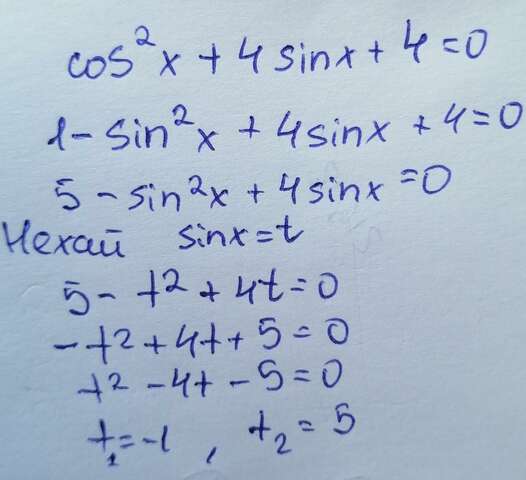 cos²x + 4 sinx + 4 = 0
1 - sin²x + 4sinx + 4 = 0
5 - sin²x + 4sinx = 0
Нехай sinx = t
5 - t² + 4t = 0
-t² + 4t + 5 = 0
t² - 4t - 5 = 0
t₁ = -1 , t₂ = 5